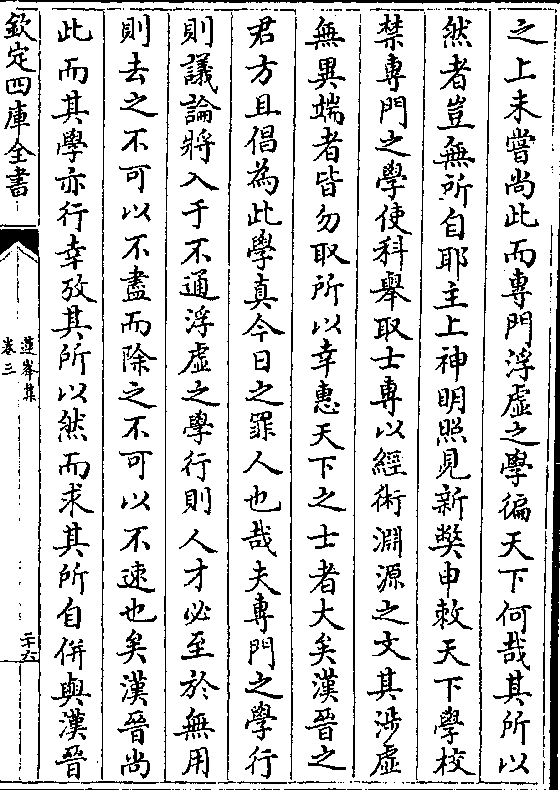 之上未嘗尚此而專門浮虛之學徧天下何哉其所以
然者豈無所自耶主上神明照見新弊申敕天下學校
禁專門之學使科舉取士專以經術淵源之文其涉虛
無異端者皆勿取所以幸惠天下之士者大矣漢晉之
君方且倡為此學真今日之罪人也哉夫專門之學行
則議論將入于不通浮虛之學行則人才必至於無用
則去之不可以不盡而除之不可以不速也矣漢晉尚
此而其學亦行幸攷其所以然而求其所自併與漢晉
欽定四庫全書
蓮峯集
卷三
二十六